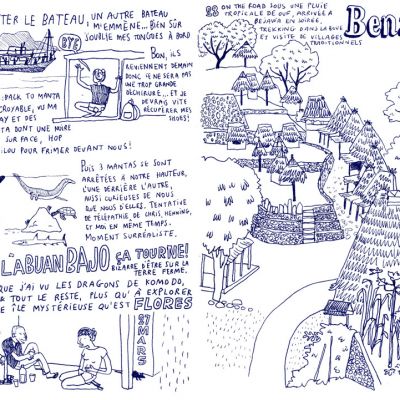 TER LE BATEAU, UN AUTRE BATEAU
M'EMMÈNE... BIEN SÛR
J'OUBLIE MES TONGUES À BORD
BYE
BON, ILS
REVIENNENT DEMAIN
DONC CE NE SERA PAS
UNE TROP GRANDE
DÉCHIRURE... ET JE
DEVRAI VITE
RÉCUPÉRER MES
SHOES!
PACK TO MANTA
CROYABLE, VU MA
AY ET DES
TA DONT UNE NOIRE
SURFACE, HOP
LOU POUR FRIMER DEVANT NOUS!
PUIS 3 MANTAS SE SONT
ARRÊTÉES À NOTRE HAUTEUR,
L'UNE DERRIÈRE L'AUTRE,
AUSSI CURIEUSES DE NOUS
QUE NOUS D'ELLES. TENTATIVE
DE TÉLÉPATHIE DE CHRIS, HENNING,
ET MOI EN MÊME TEMPS.
MOMENT SURRÉALISTE.
LABUAN BAJO ÇA TOURNE!
BIZARRE D'ÊTRE SUR LA
TERRE FERME.
QUE J'AI VU LES DRAGONS DE KOMODO,
& TOUT LE RESTE, PLUS QU'À EXPLORER
E ÎLE MYSTÉRIEUSE QU'EST FLORES
27
MARS
28 ON THE ROAD SOUS UNE PLUIE
TROPICALE DE OUF, ARRIVÉE À
BEJAWA EN SOIRÉE,
TREKKING DANS LA BOUE
ET VISITE DE VILLAGES
TRADITIONNELS
Ben